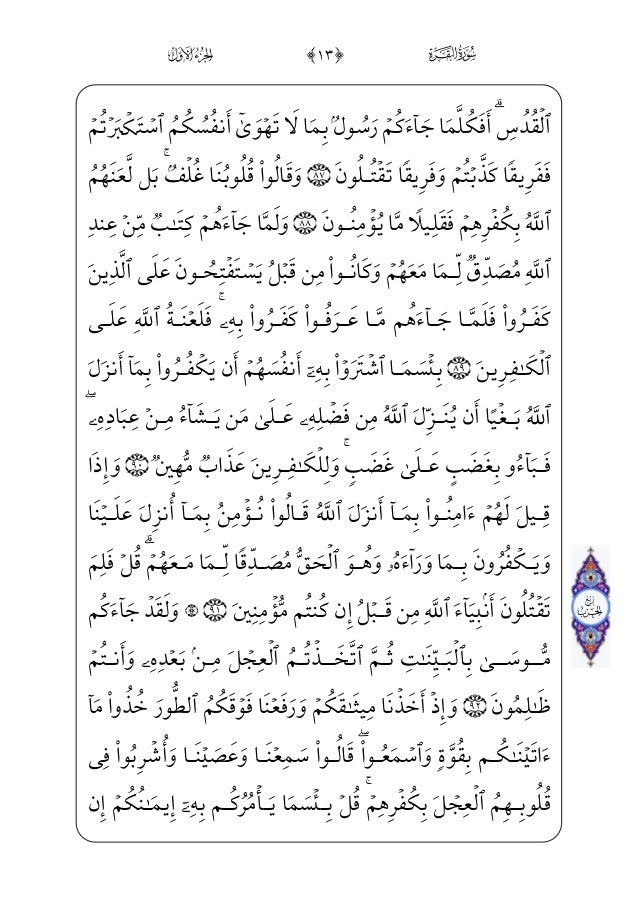 سُورَةُ ٱلْبَقَرَةِ ﴿١٣﴾ الجُزْءُ الأَوَّلُ
ٱلْقُدُسِ ۗ أَفَكُلَّمَا جَآءَكُمْ رَسُولٌۢ بِمَا لَا تَهْوَىٰٓ أَنفُسُكُمُ ٱسْتَكْبَرْتُمْ
فَفَرِيقًا كَذَّبْتُمْ وَفَرِيقًا تَقْتُلُونَ ٨٧ وَقَالُوا۟ قُلُوبُنَا غُلْفٌۢ ۚ بَل لَّعَنَهُمُ
ٱللَّهُ بِكُفْرِهِمْ فَقَلِيلًا مَّا يُؤْمِنُونَ ٨٨ وَلَمَّا جَآءَهُمْ كِتَـٰبٌ مِّنْ عِندِ
ٱللَّهِ مُصَدِّقٌ لِّمَا مَعَهُمْ وَكَانُوا۟ مِن قَبْلُ يَسْتَفْتِحُونَ عَلَى ٱلَّذِينَ
كَفَرُوا۟ فَلَمَّا جَآءَهُم مَّا عَرَفُوا۟ كَفَرُوا۟ بِهِۦ ۚ فَلَعْنَةُ ٱللَّهِ عَلَى
ٱلْكَـٰفِرِينَ ٨٩ بِئْسَمَا ٱشْتَرَوْا۟ بِهِۦٓ أَنفُسَهُمْ أَن يَكْفُرُوا۟ بِمَآ أَنزَلَ
ٱللَّهُ بَغْيًا أَن يُنَزِّلَ ٱللَّهُ مِن فَضْلِهِۦ عَلَىٰ مَن يَشَآءُ مِنْ عِبَادِهِۦ ۖ
فَبَآءُو بِغَضَبٍ عَلَىٰ غَضَبٍ ۚ وَلِلْكَـٰفِرِينَ عَذَابٌ مُّهِينٌ ٩٠ وَإِذَا
قِيلَ لَهُمْ ءَامِنُوا۟ بِمَآ أَنزَلَ ٱللَّهُ قَالُوا۟ نُؤْمِنُ بِمَآ أُنزِلَ عَلَيْنَا
وَيَكْفُرُونَ بِمَا وَرَآءَهُۥ وَهُوَ ٱلْحَقُّ مُصَدِّقًا لِّمَا مَعَهُمْ ۗ قُلْ فَلِمَ
تَقْتُلُونَ أَنۢبِيَآءَ ٱللَّهِ مِن قَبْلُ إِن كُنتُم مُّؤْمِنِينَ ٩١ ۞ وَلَقَدْ جَآءَكُم
رُبْعُ الحِزْبِ
مُّوسَىٰ بِٱلْبَيِّنَـٰتِ ثُمَّ ٱتَّخَذْتُمُ ٱلْعِجْلَ مِنۢ بَعْدِهِۦ وَأَنتُمْ
ظَـٰلِمُونَ ٩٢ وَإِذْ أَخَذْنَا مِيثَـٰقَكُمْ وَرَفَعْنَا فَوْقَكُمُ ٱلطُّورَ خُذُوا۟ مَآ
ءَاتَيْنَـٰكُم بِقُوَّةٍ وَٱسْمَعُوا۟ ۖ قَالُوا۟ سَمِعْنَا وَعَصَيْنَا وَأُشْرِبُوا۟ فِى
قُلُوبِهِمُ ٱلْعِجْلَ بِكُفْرِهِمْ ۚ قُلْ بِئْسَمَا يَأْمُرُكُم بِهِۦٓ إِيمَـٰنُكُمْ إِن